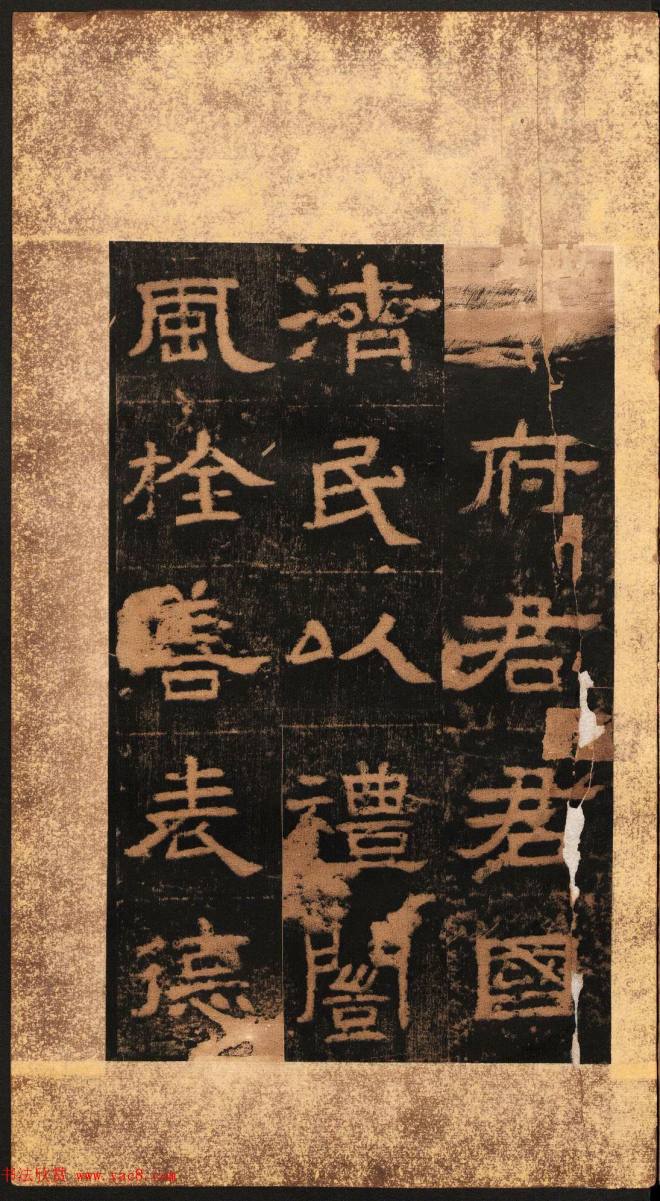 府君君國
濟民以禮闓
風旌善表德
书法欣赏 www.yac8.com